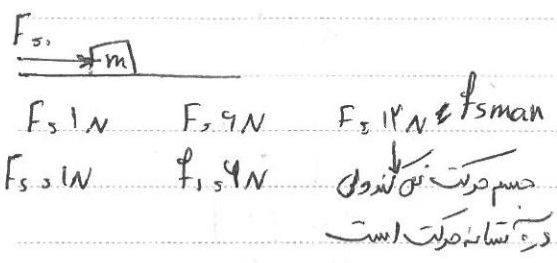 F = 0
m
F = 1N F = 9N F = 12N = fsmax
Fs = 1N fs = 9N جسم حرکت نمی کند ولی
در آستانه حرکت است